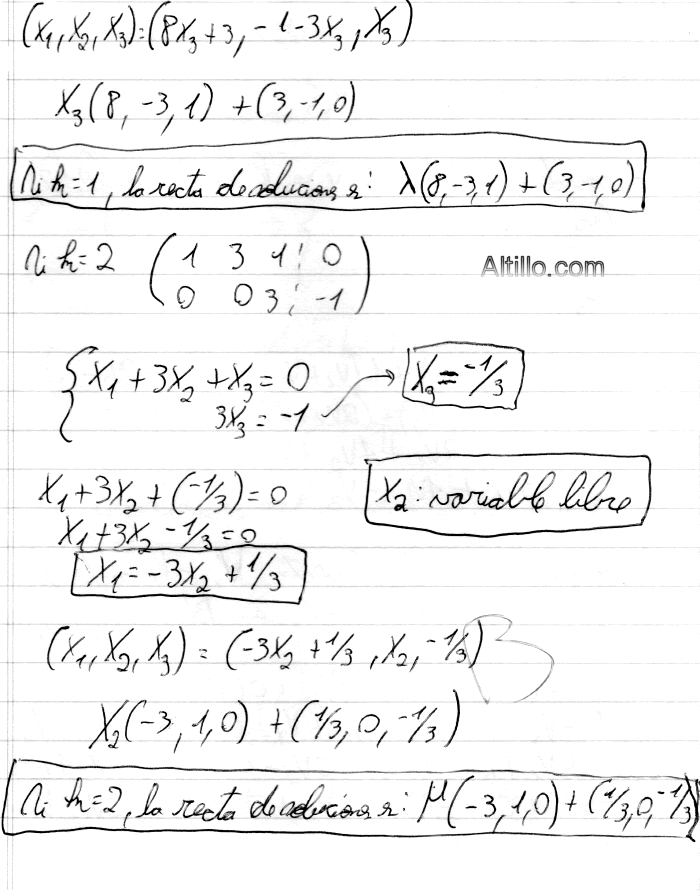 (x₁, x₂, x₃) = (8x₃+3, -1-3x₃, x₃)
x₃(8, -3, 1) + (3, -1, 0)
si h=1, la recta de soluciones es: λ(8, -3, 1) + (3, -1, 0)
si h=2 ( 1 3 1 ¦ 0
0 0 3 ¦ -1 )
Altillo.com
{ x₁ + 3x₂ + x₃ = 0 → x₃ = -1/3
3x₃ = -1
x₁ + 3x₂ + (-1/3) = 0 x₂: variable libre
x₁ + 3x₂ - 1/3 = 0
x₁ = -3x₂ + 1/3
(x₁, x₂, x₃) = (-3x₂ + 1/3, x₂, -1/3) B
x₂(-3, 1, 0) + (1/3, 0, -1/3)
si h=2, la recta de soluciones es: μ(-3, 1, 0) + (1/3, 0, -1/3)